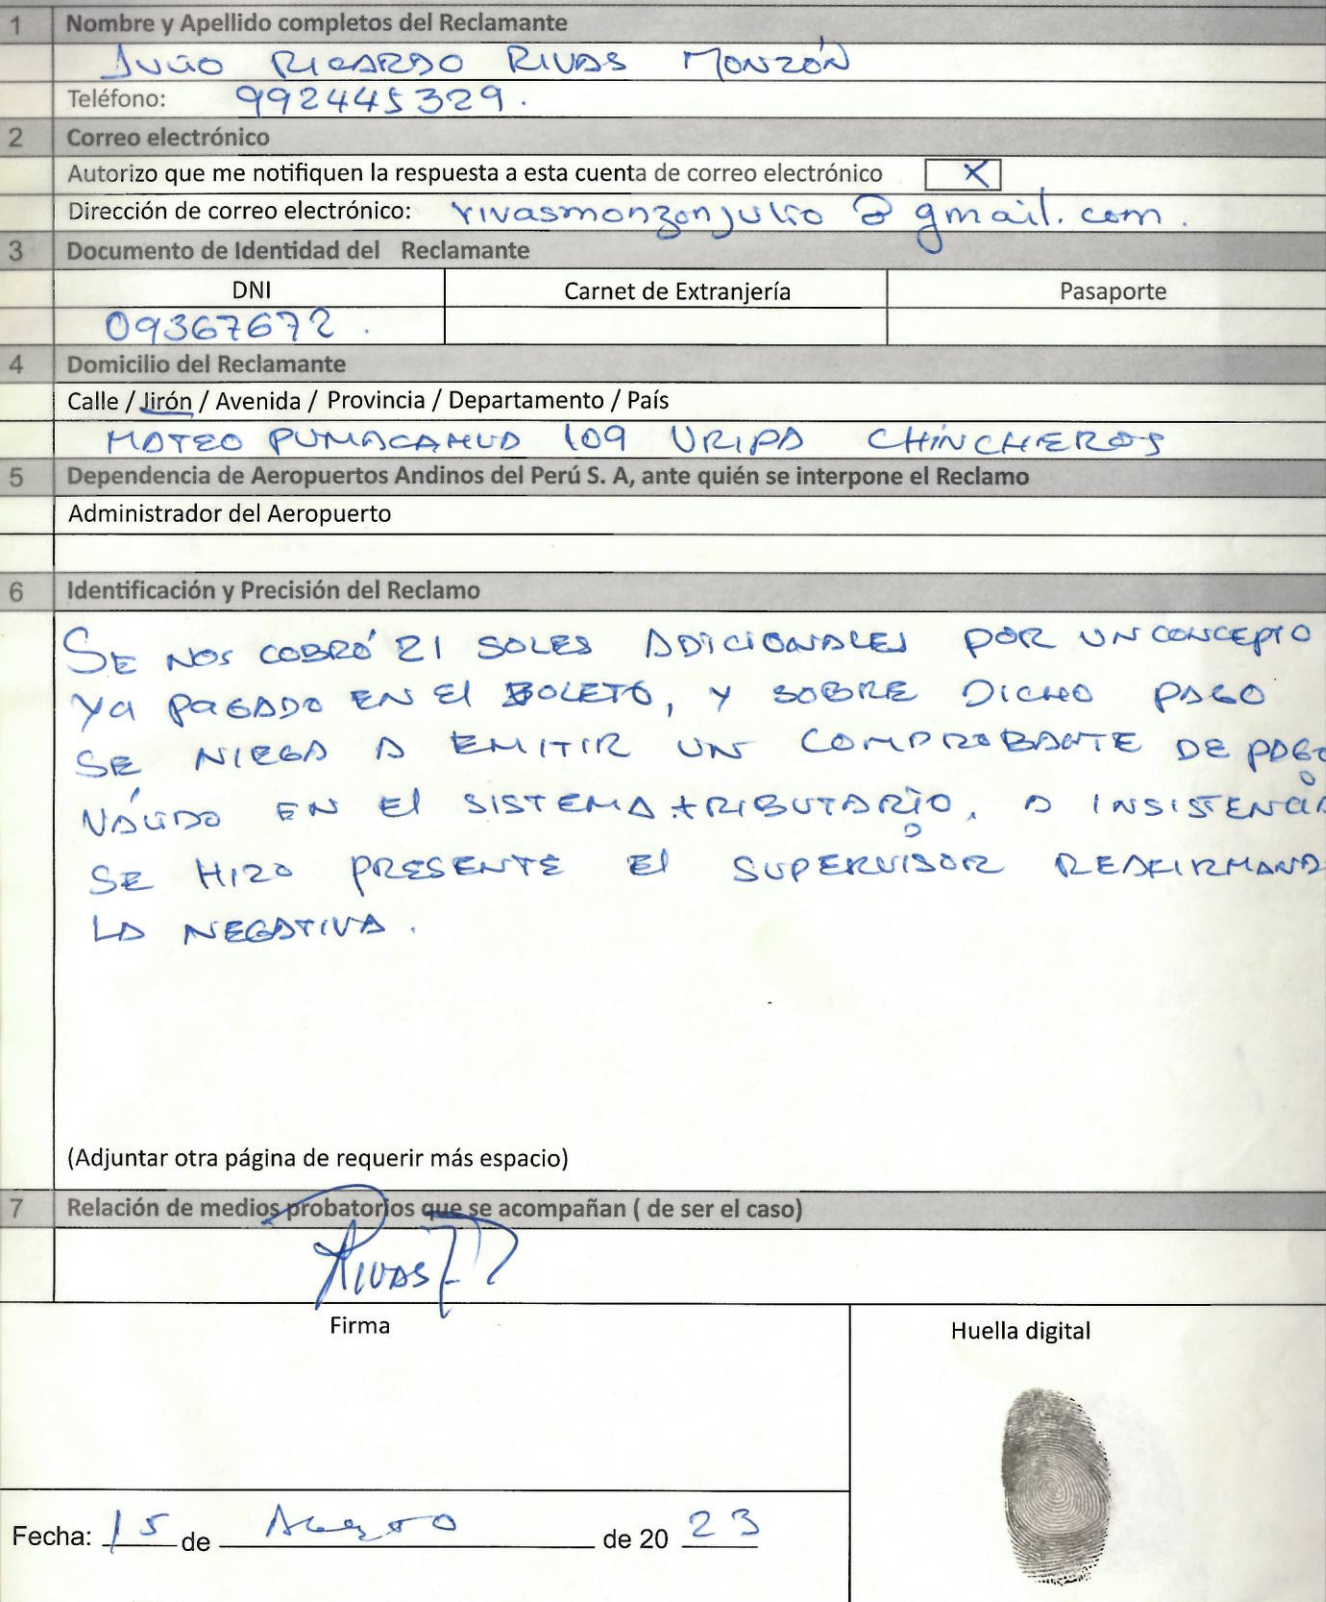 1 Nombre y Apellido completos del Reclamante
JULIO RICARDO RIVAS MONZÓN
Teléfono: 992445329.
2 Correo electrónico
Autorizo que me notifiquen la respuesta a esta cuenta de correo electrónico X
Dirección de correo electrónico: rivasmonzonjulio@gmail.com.
3 Documento de Identidad del Reclamante
DNI Carnet de Extranjería Pasaporte
09367672.
4 Domicilio del Reclamante
Calle / Jirón / Avenida / Provincia / Departamento / País
MATEO PUMACAHUA 109 URIPA CHINCHEROS
5 Dependencia de Aeropuertos Andinos del Perú S. A, ante quién se interpone el Reclamo
Administrador del Aeropuerto
6 Identificación y Precisión del Reclamo
SE NOS COBRÓ 21 SOLES ADICIONALES POR UN CONCEPTO
YA PAGADO EN El BOLETO, Y SOBRE DICHO PAGO
SE NIEGA A EMITIR UN COMPROBANTE DE PAGO
VÁLIDO EN El SISTEMA TRIBUTARIO, A INSISTENCIA
SE HIZO PRESENTE El SUPERVISOR REAFIRMANDO
LA NEGATIVA.
(Adjuntar otra página de requerir más espacio)
7 Relación de medios probatorios que se acompañan ( de ser el caso)
RIVAS
Firma Huella digital
Fecha: 15 de Agosto de 20 23